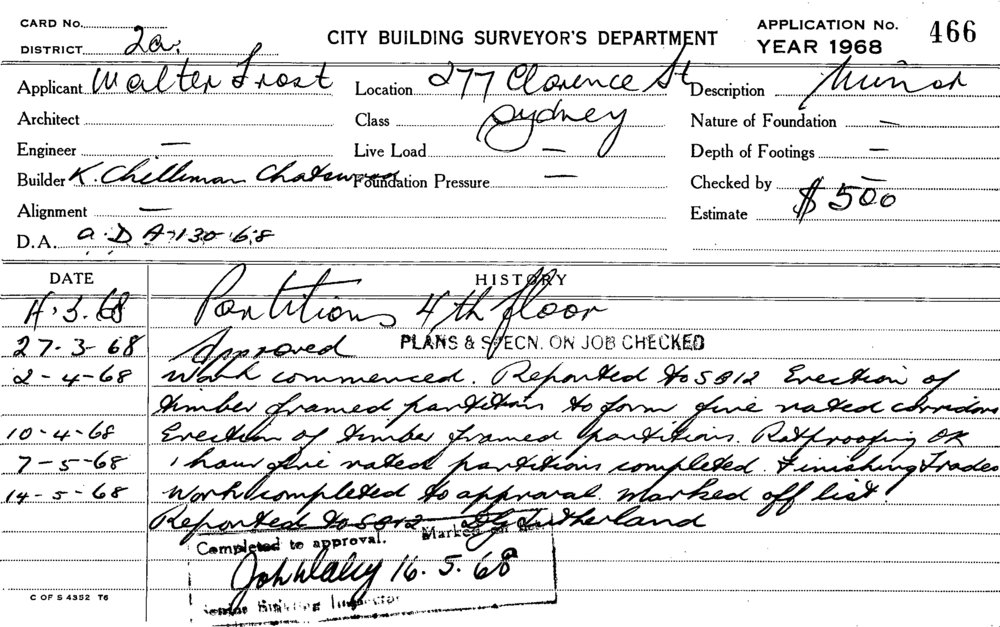 CARD No.
DISTRICT 2a.
CITY BUILDING SURVEYOR'S DEPARTMENT
APPLICATION No. 466
YEAR 1968
Applicant Walter Frost
Location 277 Clarence St
Sydney
Description Minor
Architect
Class
Nature of Foundation —
Engineer —
Live Load —
Depth of Footings —
Builder K. Chelliman Chatswood
Foundation Pressure —
Checked by —
Alignment —
Estimate $500
D.A. a.D A 130-68
DATE
HISTORY
11.3.68 Partitions 4th floor
27-3-68 Approved PLANS & SPECN. ON JOB CHECKED
2-4-68 Work commenced. Reported to SB12 Erection of
timber framed partitions to form fire rated corridors
10-4-68 Erection of timber framed partitions. Ratproofing OK
7-5-68 1 hour fire rated partitions completed. Finishing Trades
14-5-68 Work completed to approval marked off list.
Reported to SB12 Sutherland
Completed to approval. Marked off list
John Daly 16.5.68
Senior Building Inspector
C OF S 4352 T6